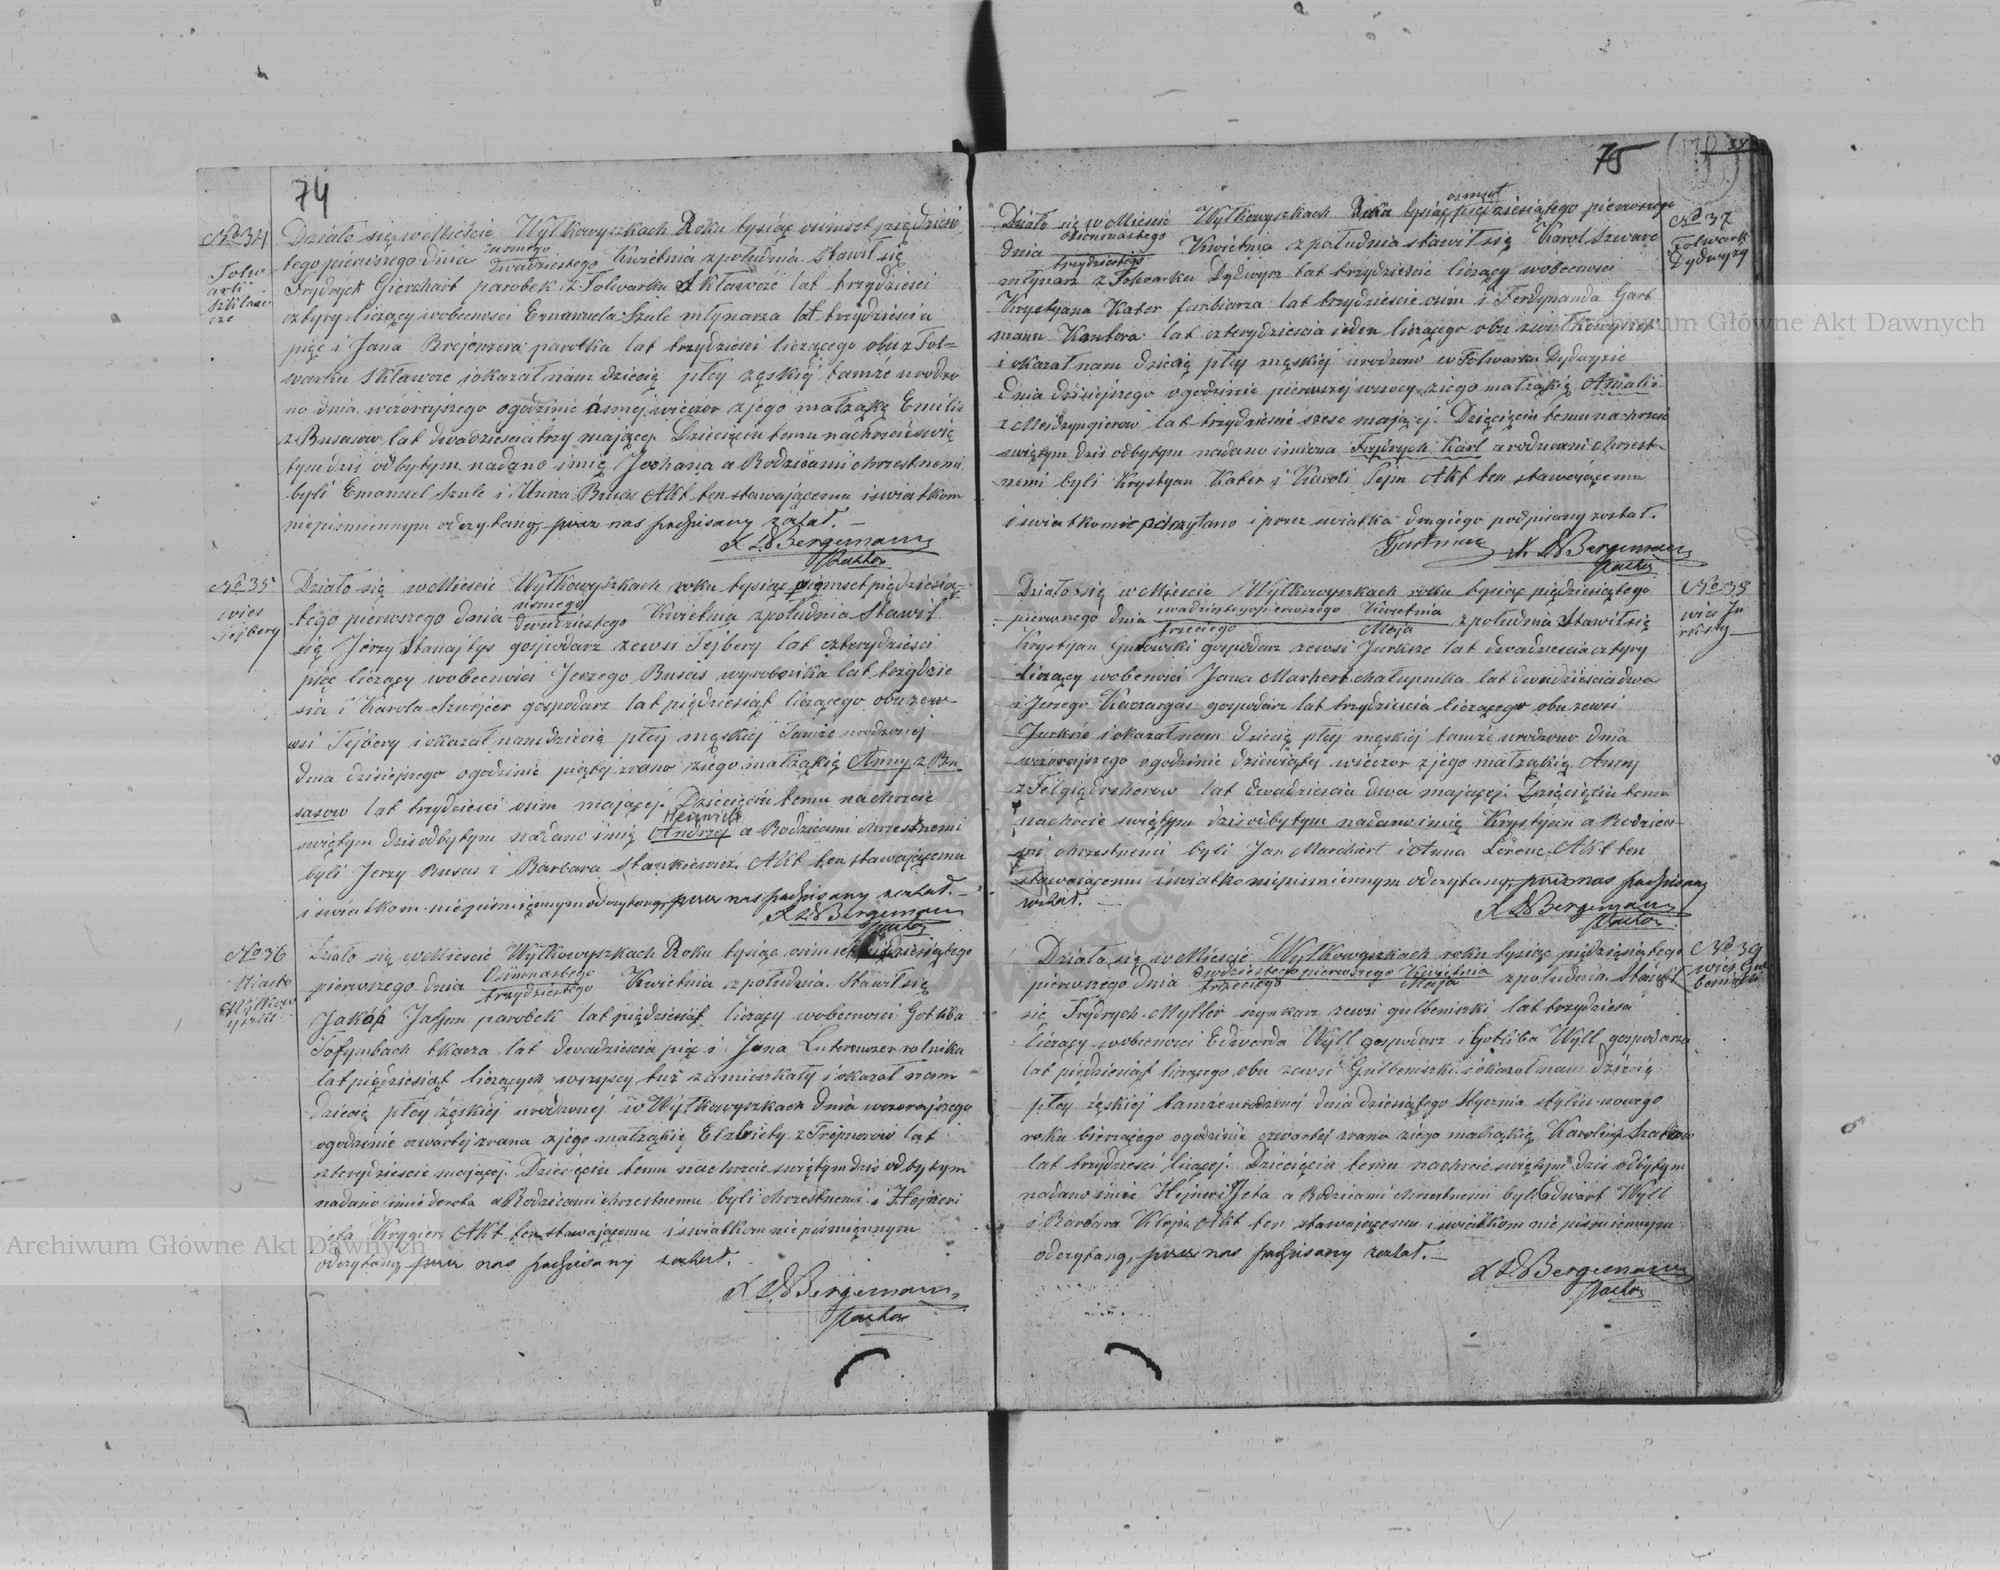 74
No 34
Folw
ark
Szklaw
cze
Działo się w Mieście Wyłkowyszkach Roku tysiąc osimset pięćdziesią
tego pierwszego dnia ósmego dwudziestego Kwietnia z południa Stawił się
Frydryck Gierchart parobek z Folwarku Skławcze lat trzydzieści
cztyry liczący w obecności Emanuela Szulc młynarza lat trzydzieści
pięc i Jana parobka lat trzydzieści liczącego obu z Fol-
warku Skławcze i okazał nam dziecię płcy żęskiej tamże urodzo
no dnia wczorajszego o godzinie ósmej wieczor z jego małżąką Emilii
z Busasow lat dwadzieścia trzy mającej. Dziecięciu temu na chrzcie świę
tym dziś odbytym nadano imię Joohana a Rodzicami chrzestnemi
byli Emanuel Szulc i Anna Busas Akt ten stawającemu i swiatkom
niepismiennym odczytany, przez nas podpisany został. —
Bergemann
Pastor
No 35
wies
Tejbery
Działo się w Mieście Wyłkowyszkach roku tysiąc osimset pięćdziesią-
tego pierwszego dnia ósmego dwudziestego Kwietnia z południa Stawił
się Jerzy Stanajtys gospodarz ze wsi Tejbery lat czterydzieści
pięc liczący w obecności Jerzego Busas wyrobnika lat trzydzie
scia i Karola gospodarz lat pięćdziesiąt liczącego obu ze w-
wsi Tejbery i okazał nam dziecię płcij męskiej Tamże urodzonej
dnia dzisiejszego o godzinie piątej z rano z jego małżąkią Anny z Bu
sasow lat trzydzieści osim mającej. Dziecięciu temu na chrzcie
świętym dziś odbytym nadano imię Heinrich Andrzej a Rodzicami chrzestnemi
byli Jerzy Busas i Barbara Stankiewicz. Akt ten stawającemu
i swiatkom niepismiennym odczytany, przez nas podpisany został. —
Bergemann
Pastor
No 36
Miasto
Wyłkow
yszki
Działo się w Mieście Wyłkowyszkach Roku tysiąc osimset pięćdziesiątego
pierwszego dnia Osimnastego trzydziestego Kwietnia z południa. Stawił się
Jakób parobek lat pięćdziesiąt liczący w obecności Gotliba
tkacza lat dwadzieścia pięc i Jana rolnika
lat pięćdziesiąt liczących wszyscy tuż zamieszkały i okazał nam
dziecię płcy żęskiej urodzonej w Wyłkowyszkach dnia wczorajszego
o godzinie czwartej z rana z jego małżąkią Elzbiety z lat
czterydzieście mającej. Dziecięciu temu na chrzcie świętym dziś odbytym
nadano imie dorota a Rodzicami chrzestnemi byli chrzestnemi i Hejnri
jeta Krygier. Akt ten stawającemu i swiatkom nie pismięnnym
odczytany przez nas podpisany został.
Bergemann,
Pastor
75
Działo się w Mieście Wyłkowyszkach Roku tysiąc osmset pięćdziesiątego pierwszego
dnia osiemnastego trzydziestego Kwietnia z południa stawił się Karol Szwarc
młynarz z Folwarku Dydwyze lat trzydzieście liczący w obecności
Krystyana Kater farbiarza lat trzydzieście osim i Ferdynanda Gart
mann Kantora lat czterydzieścia ieden liczącego obu z Wiłkowyszek
i okazał nam dziecię płcy męskiej urodzono w Folwarku Dydwyzie
dnia dzisiejszego o godzinie pierwszej w nocy z iego małżąkią Amalii
z lat trzydzieście szesc mającej. Dziecięciu temu na chrzcie
swiętym dziś odbytym nadano imiona Frydrych Karl a rodzicami chrzest-
nemi byli Krystyan Kater i Karoli Akt ten stawającemu
i swiatkomie odczytano i przez swiatka drugiego podpisany został.
Gartmann Bergemann
Pastor
No 37
Folwark
Dydwyzy
Działo się w Mieście Wyłkowyszkach roku tysiąc pięćdziesiątego
pierwszego dnia dwudziestego pierwszego Kwietnia trzeciego Maja z południa Stawił się
Krystyan Gutowski gospodarz ze wsi Jurksze lat dwadzieścia cztyry
liczący w obecności Jana Markert chałupnika lat dwadzieścia dwa
i Jerzego gospodarz lat trzydzieścia liczącego obu ze wsi
Jurksze i okazał nam dziecię płcy męskiej tamże urodzono dnia
wczorajszego o godzinie dziewiątej wieczor z jego małżąkią Anny
z lat dwadzieścia dwa mającej. Dziecięciu temu
na chrcie swiętym dziś odbytym nadano imię Krystyan a Rodzica-
mi chrzestnemi byli Jan Marchert i Anna Lorenc. Akt ten
stawającemu i swiatko niepismiennym odczytany, przez nas podpisany
został. —
Bergemann
Pastor
No 38
wies Ju
rkszy
Działo się w Mieście Wyłkowyszkach roku tysiąc pięćdziesiątego
pierwszego dnia dwudziestego pierwszego Kwietnia trzeciego Maja z południa. Stawił
się Frydrych Myller szynkarz ze wsi gulbeniszki lat trzydzieści
liczący w obecności Edwarda Wyll gospodarz i Gotliba Wyll gospodarza
lat pięćdziesiąt liczącego obu ze wsi Gulbeniszki i okazał nam dziécię
płcy żęskiej tamże urodzonej dnia dziesiątego Stycznia stylu nowego
roku bierzącego o godzinie czwartej z rana z iego małżąkią Karoliny
lat trzydzieści liczącej. Dziecięciu temu na chrcie świętym dziś odbytym
nadano imię Hejnerijeta a Rodzicami chrzestnemi byli Edwart Wyll
i Barbara Klejn Akt ten stawającemu i swiatkom nie pismiennym
odczytany, przez nas podpisany został. —
Bergemann
Pastor
No 39
wies Gul
beniszki
Archiwum Główne Akt Dawnych
Archiwum Główne Akt Dawnych